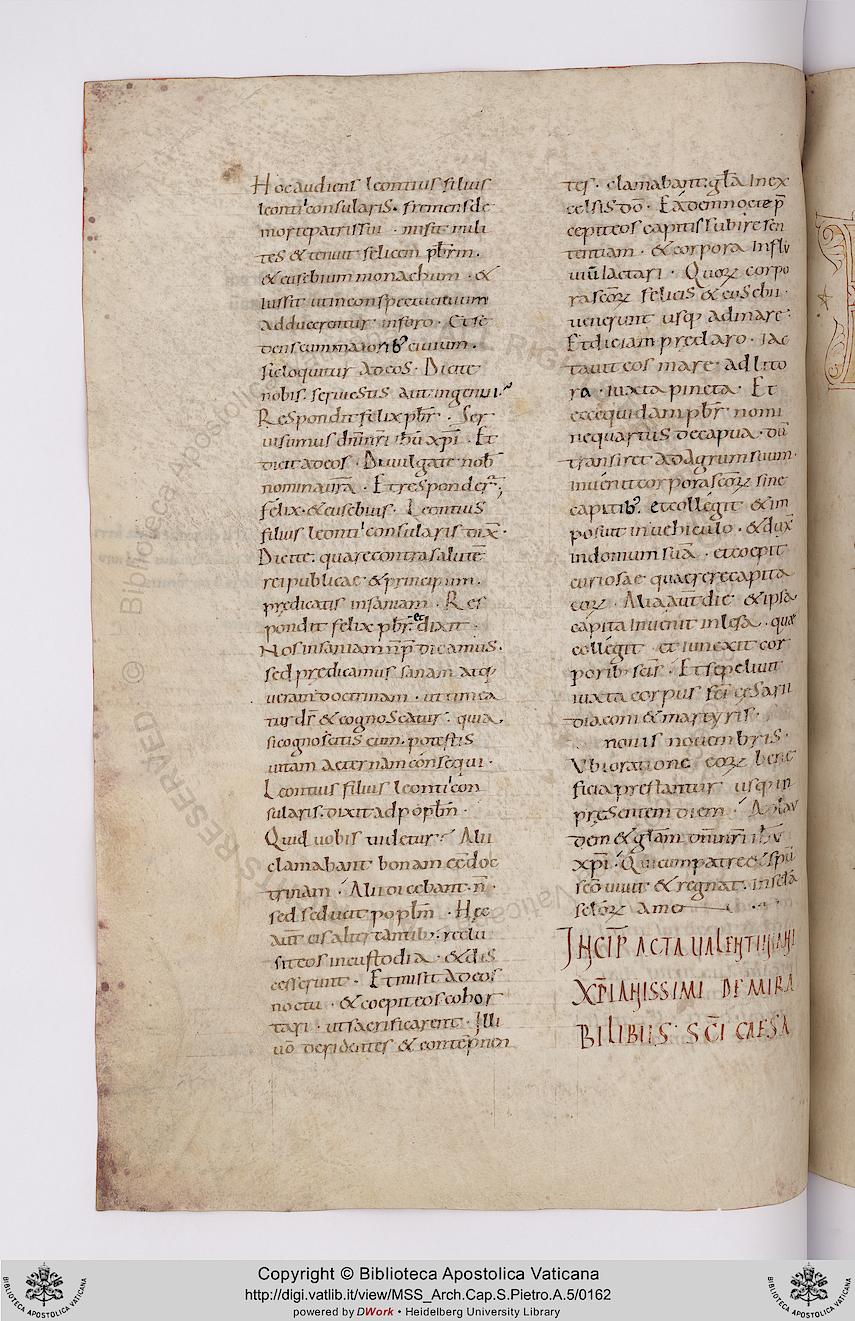 Hoc audiens leontius filius
leontii consularis. fremens de
morte patris sui · misit mili
tes & tenuit felicem pbr̄m.
& eusebium monachum · &
iussit ut in conspectu ciuium
adducerentur in foro · Et se
dens cum maiorib; ciuium.
sic loquitur ad eos · Dicite
nobis. seruiestis aut ingenui
Respondit felix pbr̄ · Ser
ui sumus dn̄i nr̄i ihū xp̄i · Et
dicit ad eos · Diuulgate nob̄
nomina ur̄a · Et responder̄
felix · & eusebius · Leontius
filius leontii consularis dix̄ ·
Dicite. quare contra salutē
rei publicae & principum.
predicatis insaniam · Res
pondit felix pbr̄. et dixit ·
Nos insaniam n̄ p̄dicamus.
sed predicamus sanam atq;
ueram doctrinam · ut timea
tur ds̄ & cognoscatur · quia,
si cognoscitis eum. potestis
uitam aeternam consequi ·
Leontius filius leontii con
sularis. dixit ad popl̄m ·
Quid uobis uidetur · Alii
clamabant bonam eē doc
trinam · Alii dicebant · n̄ ·
sed seducit popl̄m · Hęc
aūt eis altercantib; · reclu
sit eos in custodia · & dis
cesserunt · Et misit ad eos
noctu · & coepit eos cohor
tari · ut sacrificarent · Illi
uō deridentes & contēpnen
tes · clamabant: glā in ex
celsis dō · Eadem nocte p̄
cepit eos capitis subire sen
tentiam · & corpora in flu
uiū iactari · Quorum corpo
ra scōrum felicis & eusebii ·
uenerunt usq; ad mare ·
Et die iam preclaro · iac
tauit eos mare · ad lito
ra · iuxta pineta · Et
ecce quidam pbr̄ nomi
ne quartus de capua · dū
transiret ad agrum suum ·
inuenit corpora scōrum sine
capitib; · et collegit & im
posuit in uehiculo · & dux̄
in domum suā · et coepit
curiosae quaerere capita
eorum · Alia aūt die & ipsa
capita inuenit inlesa · quae
collegit et iunexit cor
porib; scīs · Et sepeliuit
iuxta corpus scī cesarii
diaconi & martyris ·
nonis nouembris ·
Vbi oratione eorum bene
ficia prestantur usq; in
presentem diem · Ad lau
dem & glām dn̄i nr̄i ihū
xp̄i · Qui cum patre & spū
scō uiuit & regnat · in scla
sclorum amen
INCIP̄ ACTA UALENTINIANI
XP̄IANISSIMI DE MIRA
BILIBUS SCĪ CAESA
Copyright © Biblioteca Apostolica Vaticana
http://digi.vatlib.it/view/MSS_Arch.Cap.S.Pietro.A.5/0162
powered by DWork • Heidelberg University Library